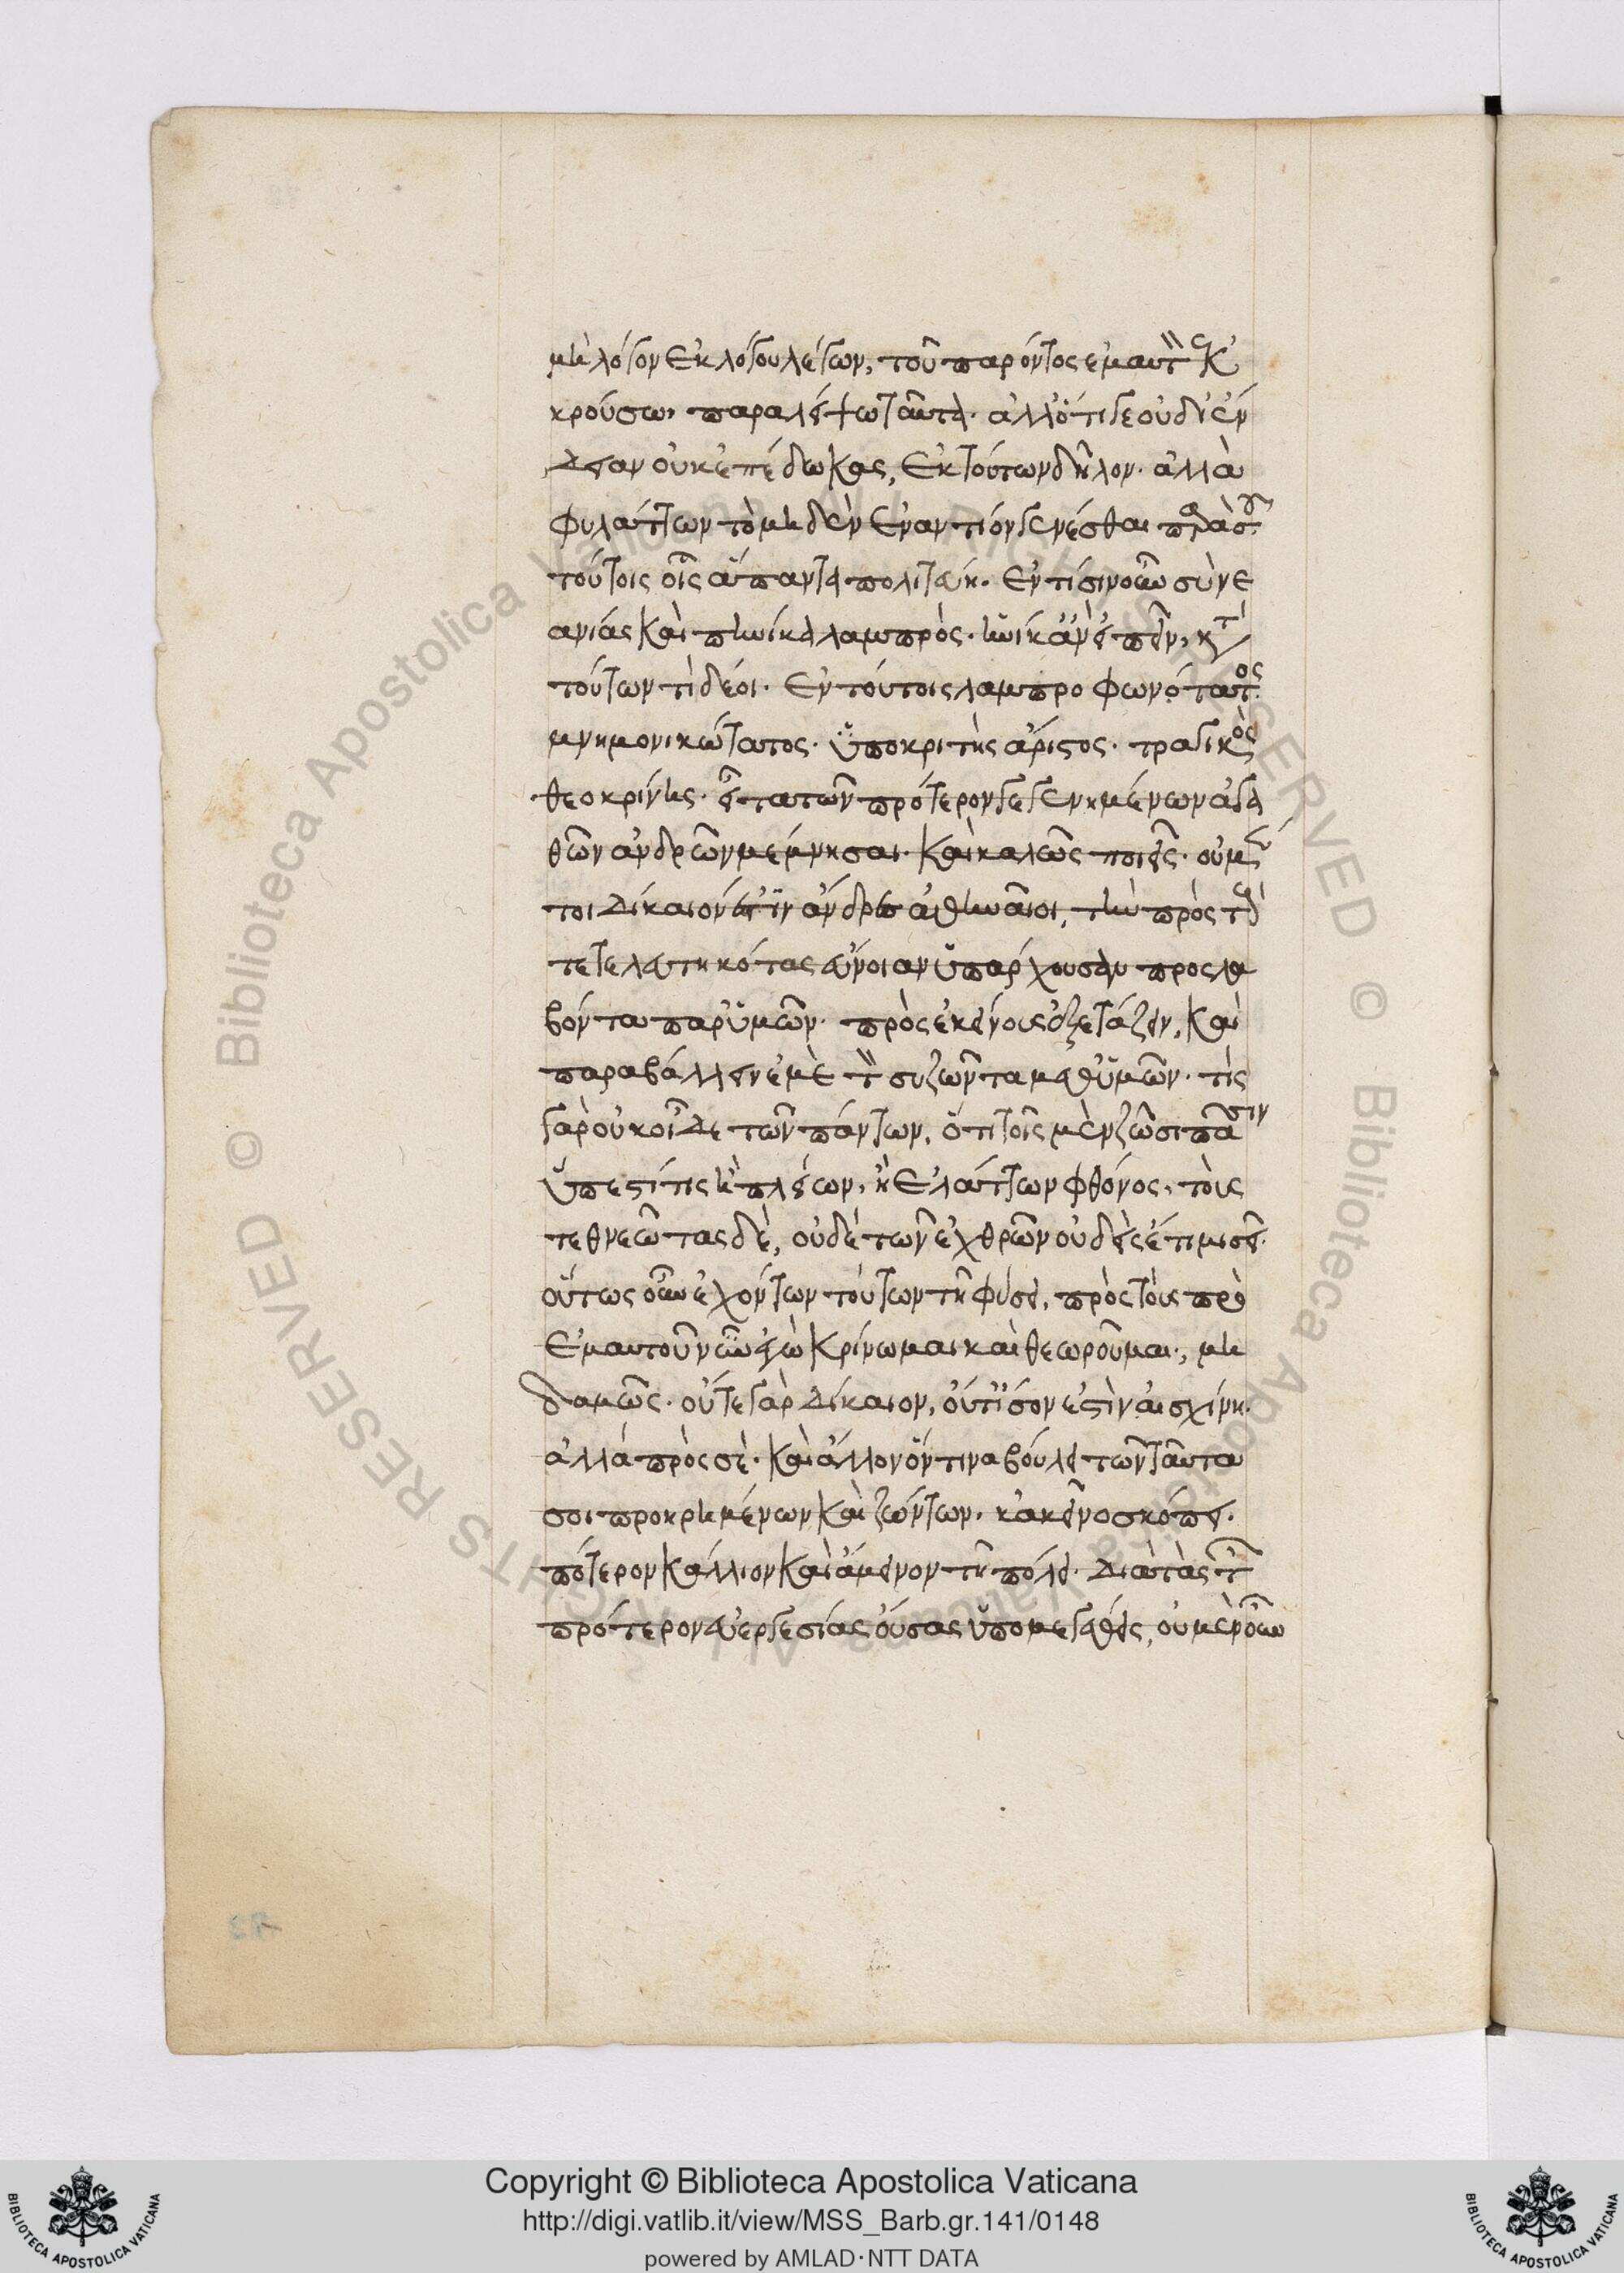 μὴ λόγον ἐκ λόγου λέγων, τοῦ παρόντος ἐμαυτὸν ἐκ
κρούσω, παραλείψω ταῦτα. ἀλλ' ὅτι γε οὐ δι' ἔν
δειαν οὐκ ἐπέδωκας, ἐκ τούτων δῆλον. ἀλλὰ
φυλάττων τὸ μηδὲν ἐναντίον γενέσθαι παρὰ σοῦ
τούτοις οἷς ἅπαντα πολιτεύη. ἐν τίσιν οὖν σὺ νε
ανίας καὶ πηνίκα λαμπρὸς. ἡνίκ' ἂν εἰπεῖν, κατὰ
τούτων τὶ δέοι. ἐν τούτοις λαμπροφωνότατος.
μνημονικώτατος. ὑποκριτὴς ἄριστος. τραγικὸς
θεοκρίνης. εἶτα τῶν πρότερον γεγενημένων ἀγα
θῶν ἀνδρῶν μέμνησαι. καὶ καλῶς ποιεῖς. οὐ μέν
τοι δίκαιόν ἐστιν ἄνδρες ἀθηναῖοι, τὴν πρὸς τοὺς
τετελευτηκότας εὔνοιαν ὑπάρχουσαν προσλα
βόντα παρ' ὑμῶν. πρὸς ἐκείνους ἐξετάζειν, καὶ
παραβάλλειν ἐμὲ τὸν συζῶντα μεθ' ὑμῶν. τίς
γὰρ οὐκ οἶδε τῶν πάντων, ὅτι τοῖς μὲν ζῶσι πᾶσιν
ὕπεστί τις ἢ πλείων, ἢ ἐλάττων φθόνος, τοὺς
τεθνεῶτας δὲ, οὐδὲ τῶν ἐχθρῶν οὐδεὶς ἔτι μισεῖ.
οὕτως οὖν ἐχόντων τούτων τῆ φύσει, πρὸς τοὺς πρὸ
ἐμαυτοῦ νῦν ἐγὼ κρίνωμαι καὶ θεωροῦμαι, μη
δαμῶς. οὔτε γὰρ δίκαιον, οὔτ' ἴσον ἐστὶν αἰσχίνη.
ἀλλὰ πρὸς σὲ. καὶ ἄλλον ὅντινα βούλει τῶν ταῦτα
σοι προηρημένων καὶ ζώντων. κἀκεῖνο σκόπει.
πότερον κάλλιον καὶ ἄμεινον τῆ πόλει. διὰ τὰς τῶν
πρότερον εὐεργεσίας οὔσας ὑπομεγάθεις, οὐ μὲν οὖν
Copyright © Biblioteca Apostolica Vaticana
http://digi.vatlib.it/view/MSS_Barb.gr.141/0148
powered by AMLAD·NTT DATA